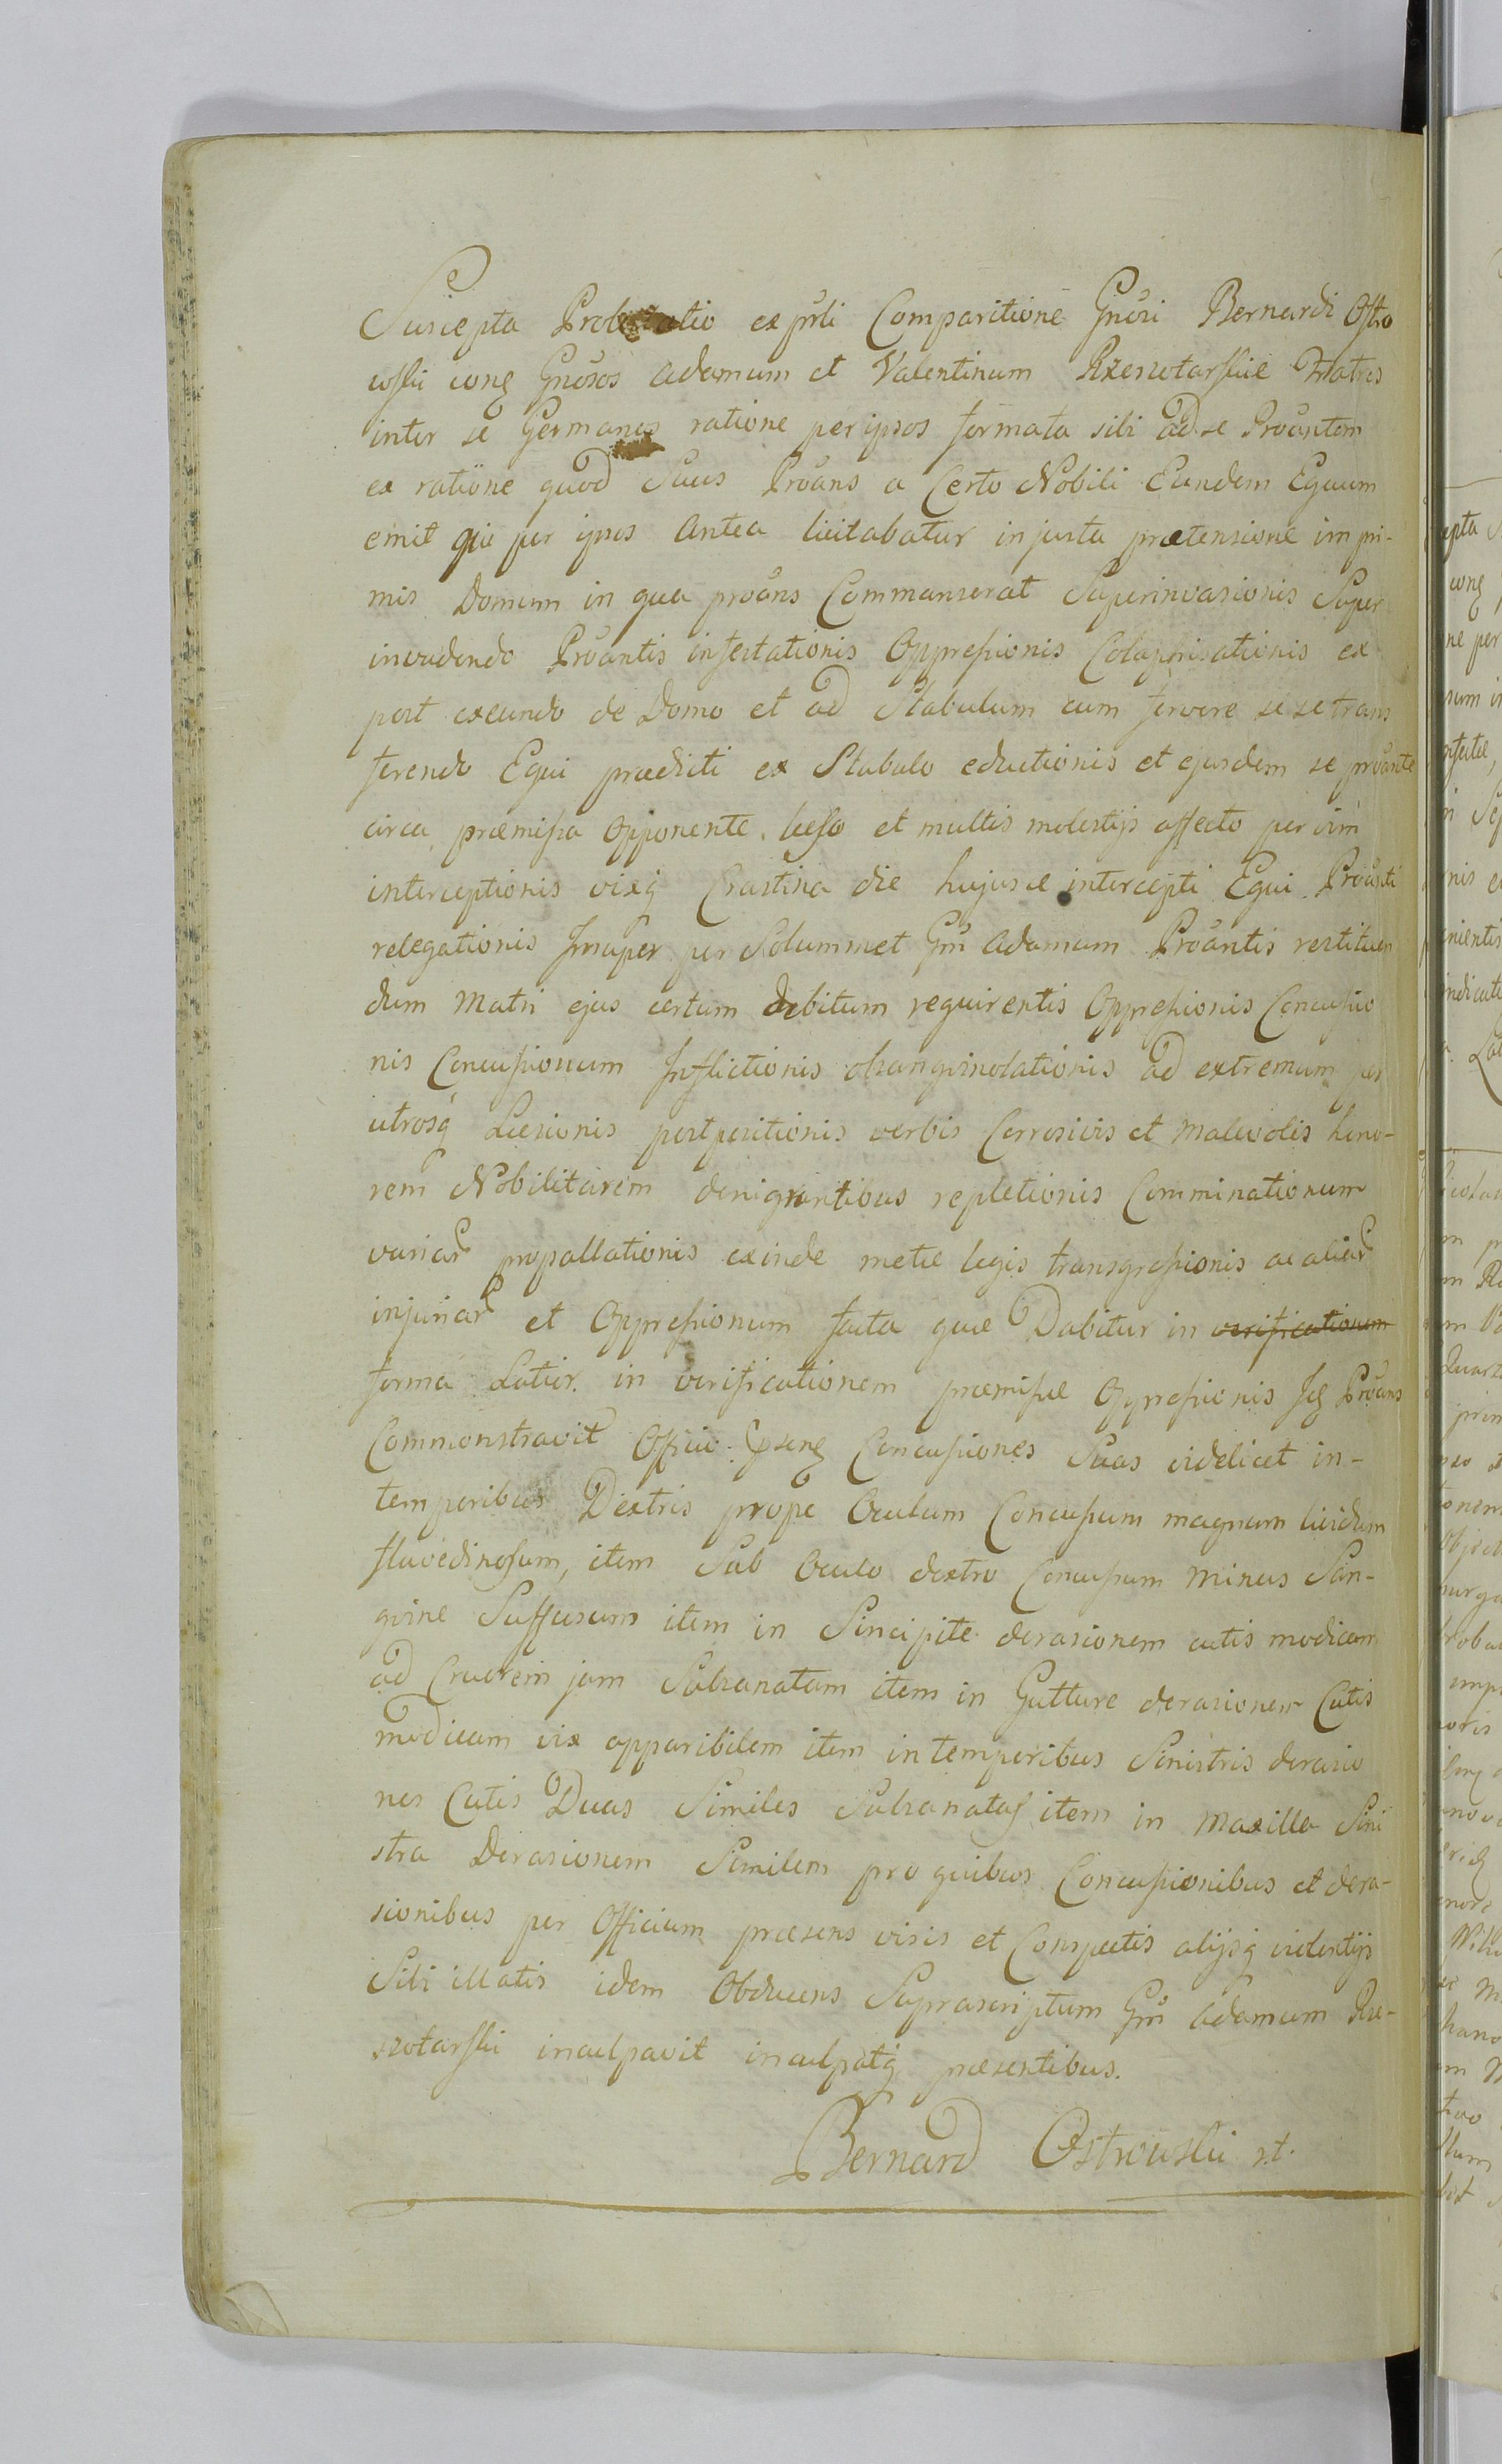 Suscepta Protestatio ex pnti Comparitione Gnosi Bernardi Ostro
wski cong Gnosos Adamum et Valentinum Rzeszotarskie Fratres
inter se Germanos ratione per ipsos formata sibi ad se Proantem
ex ratione quod Suus Proans a Certo Nobili Eundem Equum
emit qui per ipsos Antea licitabatur injusta prætensione im pri-
mis Domum in qua proans Commanserat Superinvasionis Super
invadendo Proantis infestationis Oppressionis Colaphisationis ex
post exeundo de Domo et ad Stabulum cum fervore se se trans
ferendo Equi prædicti ex Stabulo eductionis et ejusdem se proante
circa præmissa Opponente læso et multis molestijs affecto per vim
interceptionis vixq Crastina die hujusce intercepti Equi Proanti
relegationis Insuper per Solummet Gm Adamum Proantis restituen
dum Matri ejus certum debitum requirentis Oppressionis Concussio
nis Concussionum Inflictionis obsangvinolationis ad extremum per
utrosq Læsionis postpositionis verbis Corrosivis et malevolis hono-
rem Nobilitarem denigrantibus repletionis Comminationum
variar propallationis exinde metæ legis transgressionis ac aliar
injuriar et Oppressionum facta quæ Dabitur in verificationum
forma Latior. in verificationem præmissæ Oppressionis Ss Proans
Commonstravit Officio Pseng Concussiones Suas videlicet in-
temporibus Dextris prope Oculum Concussum magnum lividum
flavedinosum, item Sub Oculo dextro Concussum minus San-
gvine Suffusum item in Sincipite derasionem cutis modicam
ad Cruorem jam Subsanatam item in Gutture derasionem Cutis
modicam vix apparibilem item in temporibus Sinistris derasio
nes Cutis Duas Similes Subsanatas item in Maxilla Sini
stra Derasionem Similem pro quibus Concussionibus et dera-
sionibus per Officium præsens visis et Conspectis alijsq violentijs
Sibi illatis idem Obducens Suprascriptum Gm Adamum Rze-
szotarski inculpavit inculpatq præsentibus.
Bernard Ostrowski